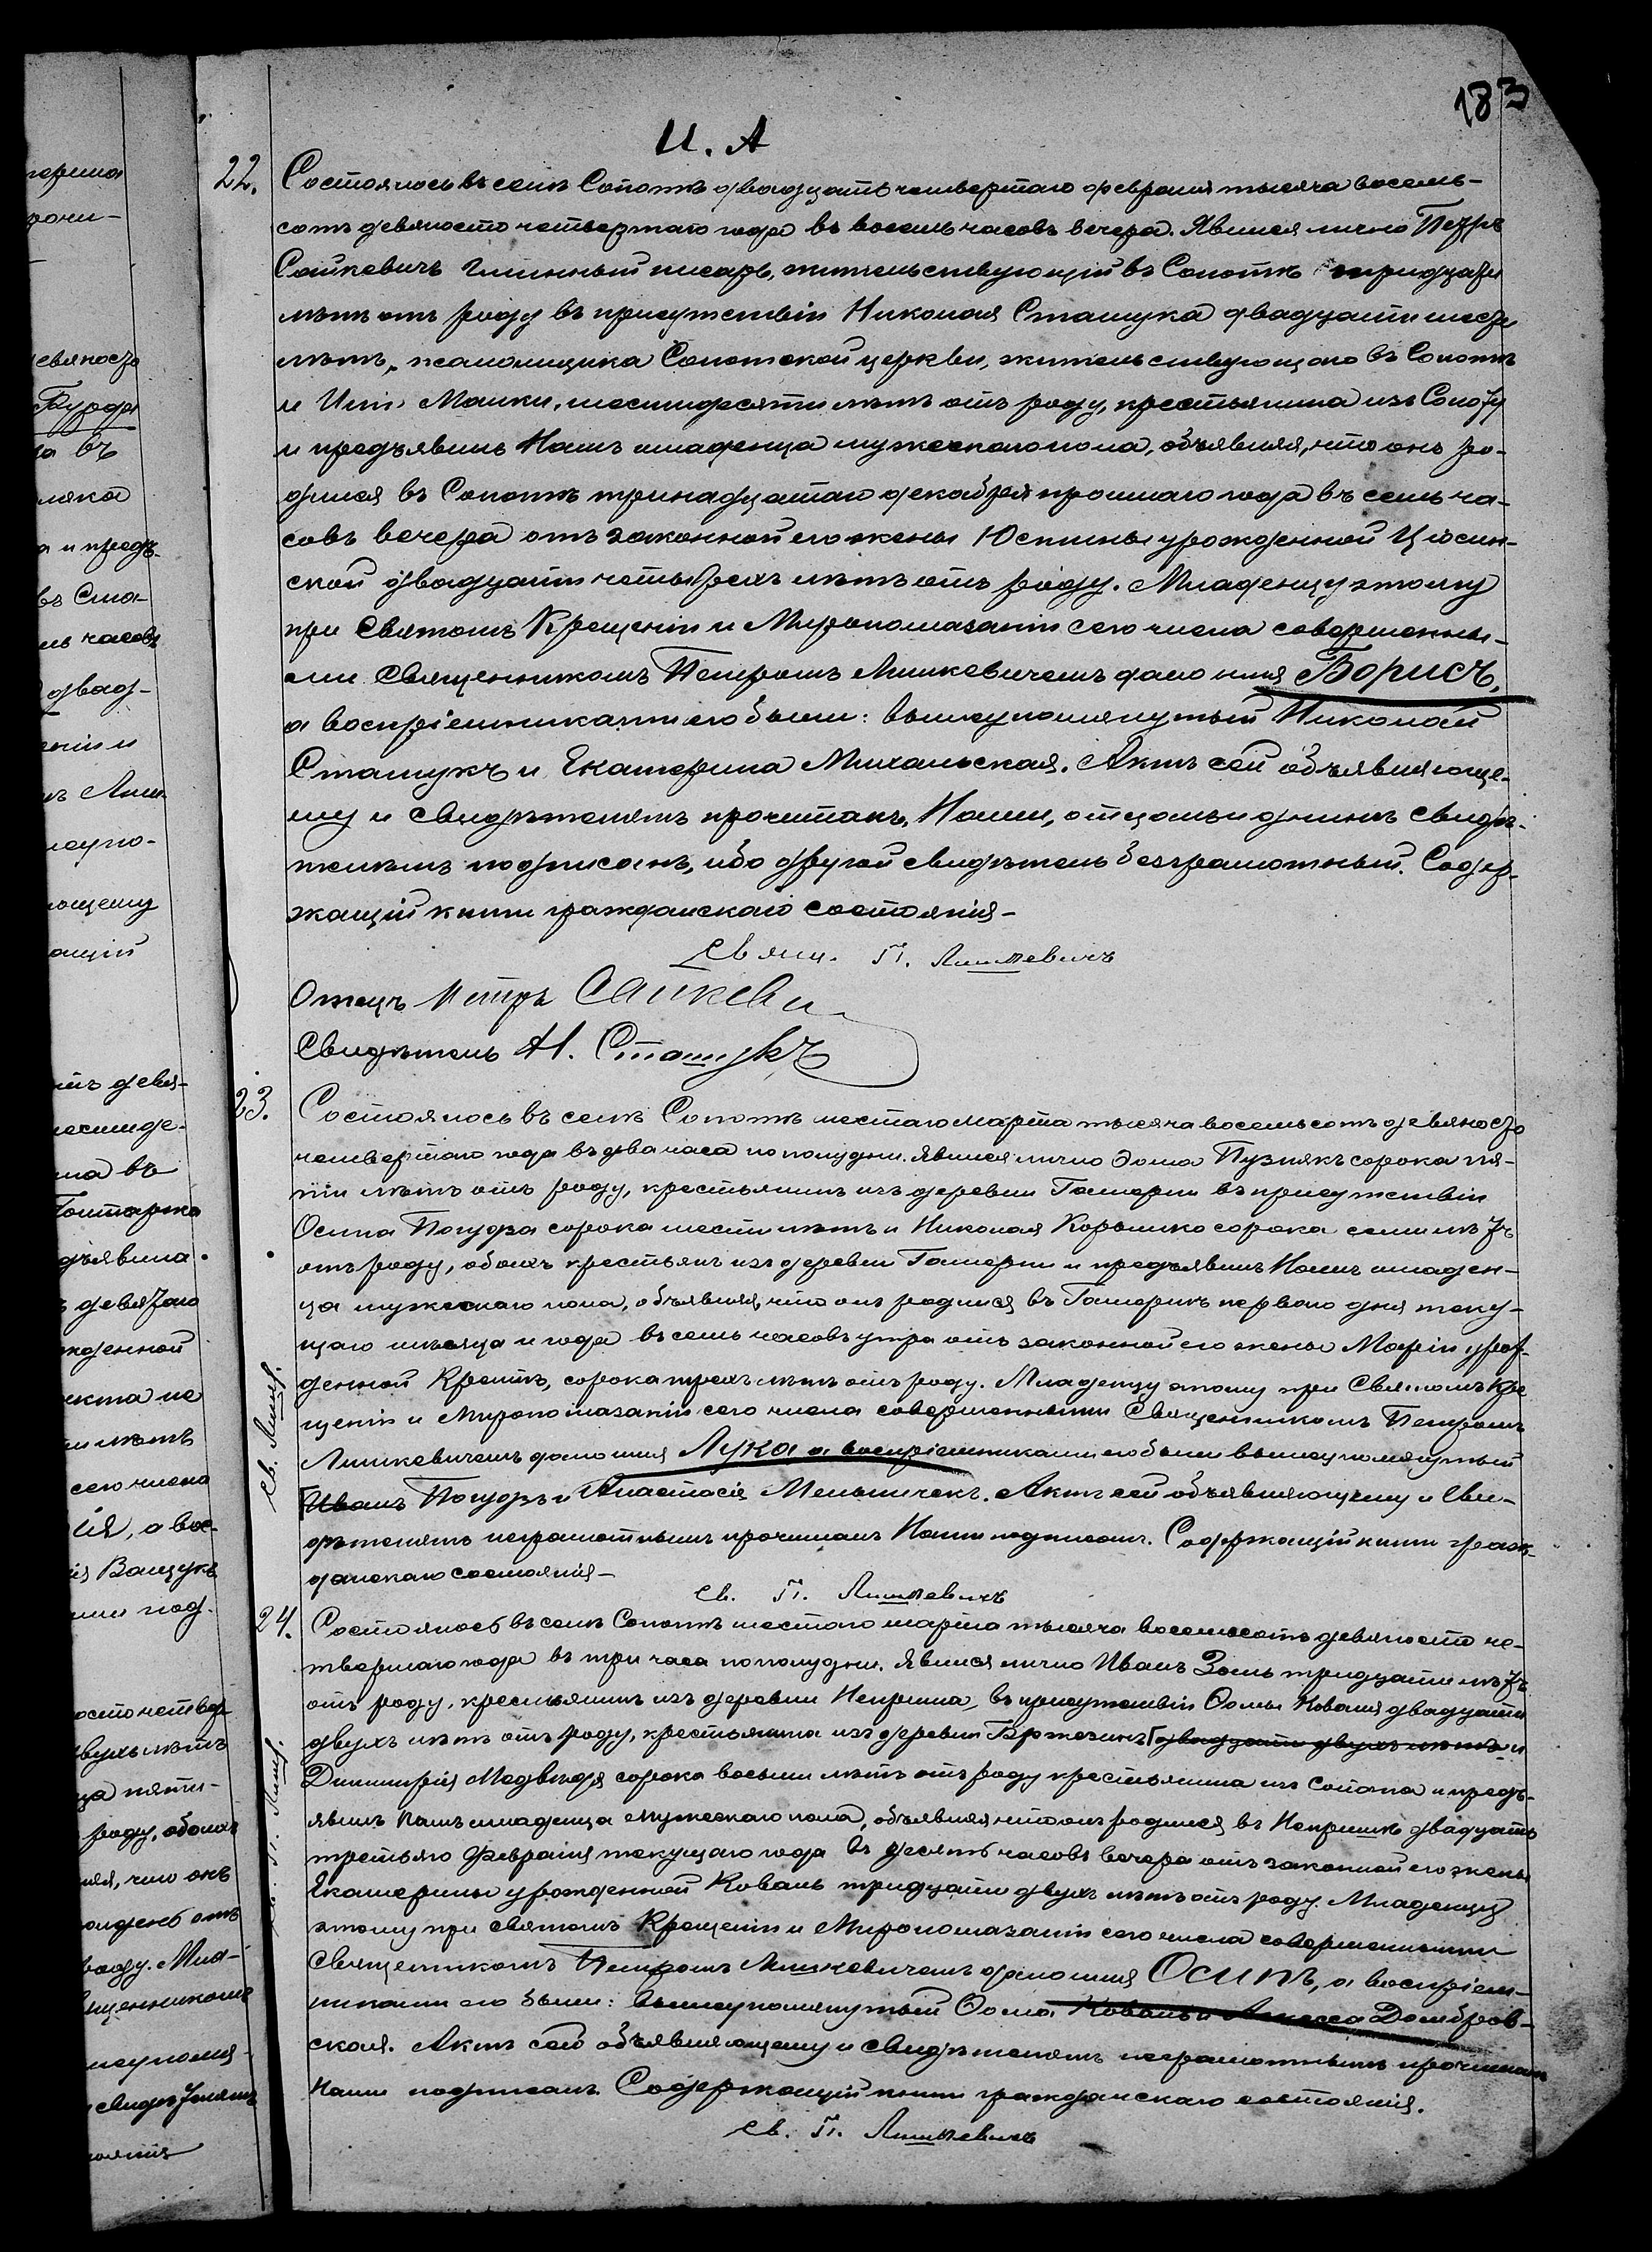 183
И. А
22. Состоялось въ селѣ Сопотѣ двадцать четвертаго февраля тысяча восемь-
сотъ девяносто четвертаго года въ восемь часовъ вечера. Явился лично Петръ
Сайкевичъ Гминный писарь, жительствующій въ Сопотѣ тридцати
лѣтъ отъ роду въ присутствіи Николая Сташука двадцати шести
лѣтъ, псаломщика Сопотской церкви, жительствующаго въ Сопотѣ
и Маики, шестидесяти лѣтъ отъ роду, крестьянина изъ Сопота
и предъявилъ Намъ младенца мужескаго пола, объявляя, что онъ ро-
дился въ Сопотѣ тринадцатаго декабря прошлаго года въ семь ча-
совъ вечера отъ законной его жены Юстины урожденной Цісин-
ской двадцати четырехъ лѣтъ отъ роду. Младенцу этому
при Святомъ Крещеніи и Миропомазаніи сего числа совершенны-
ми Священникомъ Петромъ Лишкевичемъ дано имя Борисъ,
а воспріемниками его были: вышеупомянутый Николай
Сташукъ и Екатерина Михальская. Актъ сей объявляюще-
му и свидѣтелямъ прочитанъ, Нами, отцомъ и однимъ свидѣ-
телемъ подписанъ, ибо другой свидѣтель безграмотный. Содер-
жащій книги гражданскаго состоянія -
Свящ. П. Лишкевичъ
Отецъ Петръ Сайкеви
Свидѣтель Н. Сташукъ
23. Состоялось въ селѣ Сопотѣ шестаго марта тысяча восемьсотъ девяносто
четвертаго года въ два часа по полудни. Явился лично Ѳома Пузнякъ сорока пя-
ти лѣтъ отъ роду, крестьянинъ изъ деревни Гамерни въ присутствіи
Осипа Погудза сорока шести лѣтъ и Николая Корынко сорока семи лѣтъ
отъ роду, обоихъ крестьянъ изъ деревни Гамерни и предъявилъ Намъ младен-
ца мужескаго пола, объявляя, что онъ родился въ Гамернѣ перваго дня теку-
щаго мѣсяца и года въ семь часовъ утра отъ законной его жены Маріи урож-
денной сорока трехъ лѣтъ отъ роду. Младенцу этому при Святомъ Кре
щеніи и Миропомазаніи сего числа совершенными Священникомъ Петромъ
Лишкевичемъ дано имя Лука, а воспріемниками его были вышеупомянутый
Иванъ Погудзъ и Анастасія Мельничекъ. Актъ сей объявляющему и сви-
дѣтелямъ неграмотнымъ прочитанъ Нами подписанъ. Содержащій книги граж-
данскаго состоянія -
Св. П. Лишкевичъ
24. Состоялось въ селѣ Сопотѣ шестаго марта тысяча восемьсотъ девяносто че-
твертаго года въ три часа пополудни. Явился лично Иванъ Зань тридцати лѣтъ
отъ роду, крестьянинъ изъ деревни Неприша, въ присутствіи Ѳомы Коваля двадцати
двухъ лѣтъ отъ роду, крестьянина изъ деревни Бржезинъ двадцати двухъ лѣтъ и
Димитрія Медвѣдя сорока восьми лѣтъ отъ роду крестьянина изъ Сопота и предъ-
явилъ Намъ младенца мужескаго пола, объявляя что онъ родился въ Непришѣ двадцать
третьяго Февраля текущаго года въ десять часовъ вечера отъ законной его жены
Екатерины урожденной Коваль тридцати двухъ лѣтъ отъ роду. Младенцу
этому при Святомъ Крещеніи и Миропомазаніи сего числа совершенными
Священникомъ Петромъ Лишкевичемъ дано имя Осипъ, а воспріем-
никами его были: вышеупомянутый Ѳома Коваль и Домбров-
ская. Актъ сей объявляющему и свидѣтелямъ неграмотнымъ прочитанъ
Нами подписанъ. Содержащій книги гражданскаго состоянія.
Св. П. Лишкевичъ